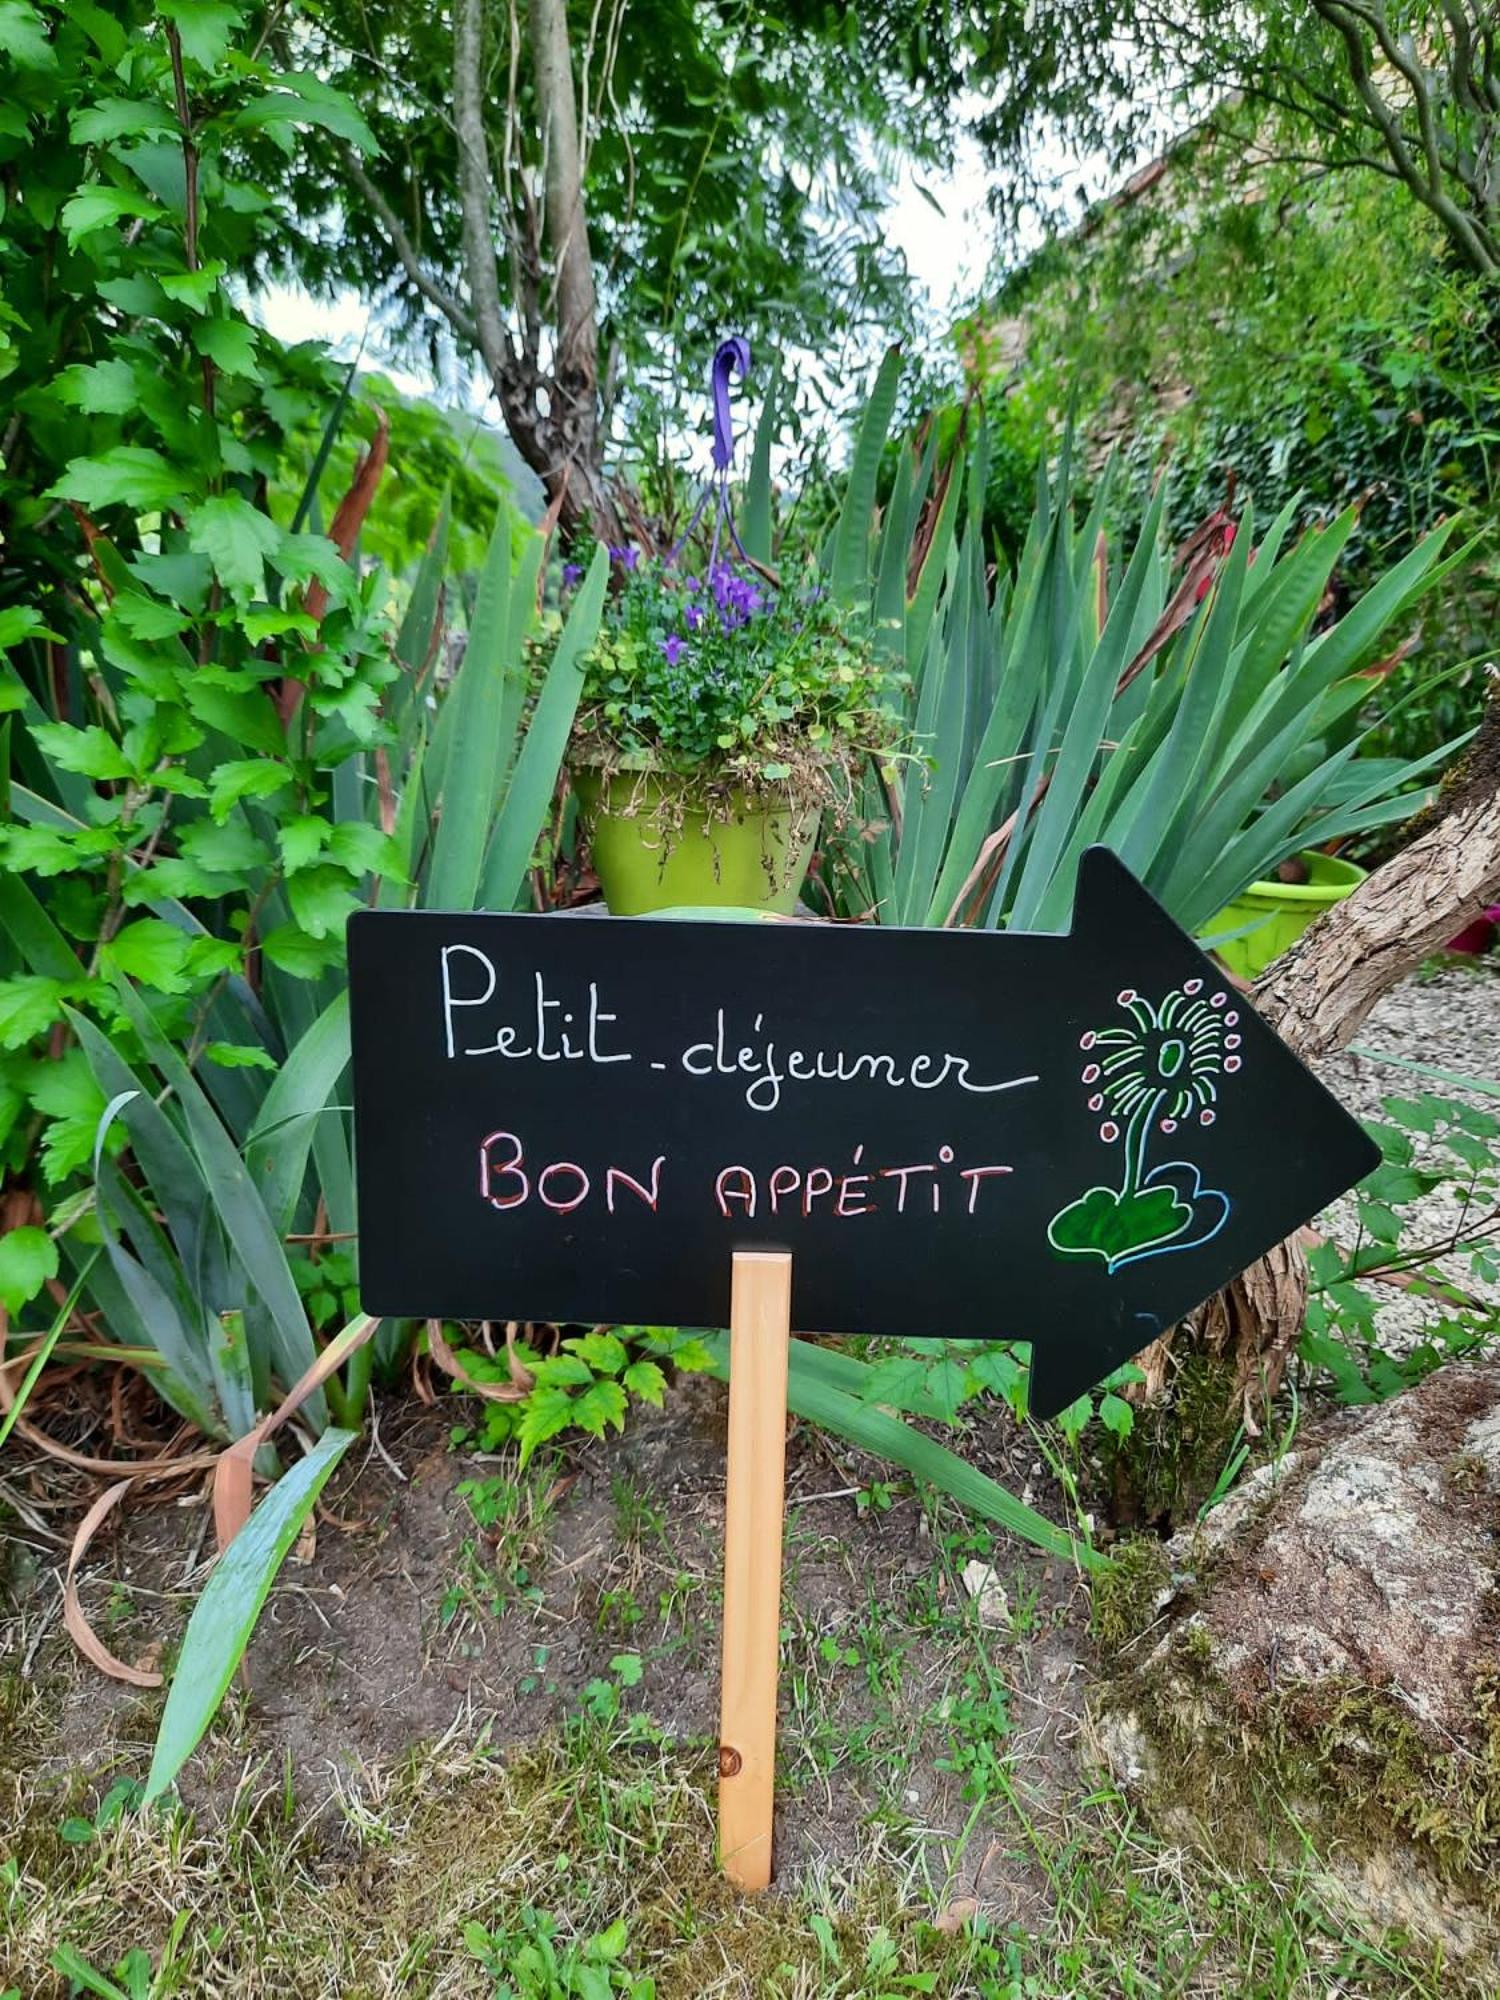 Petit-déjeuner
BON APPÉTiT